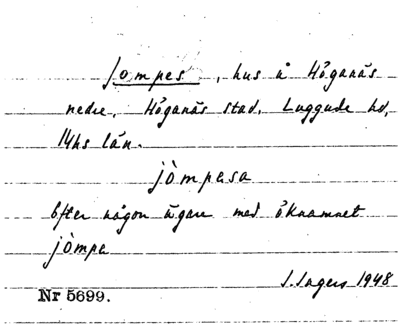 Jompes, hus å Höganäs
nedre, Höganäs stad, Luggude hd,
Mhs län.
jòmpesa
Efter någon ägare med öknamnet
jòmpe
J. Ingers 1948
Nr 5699.